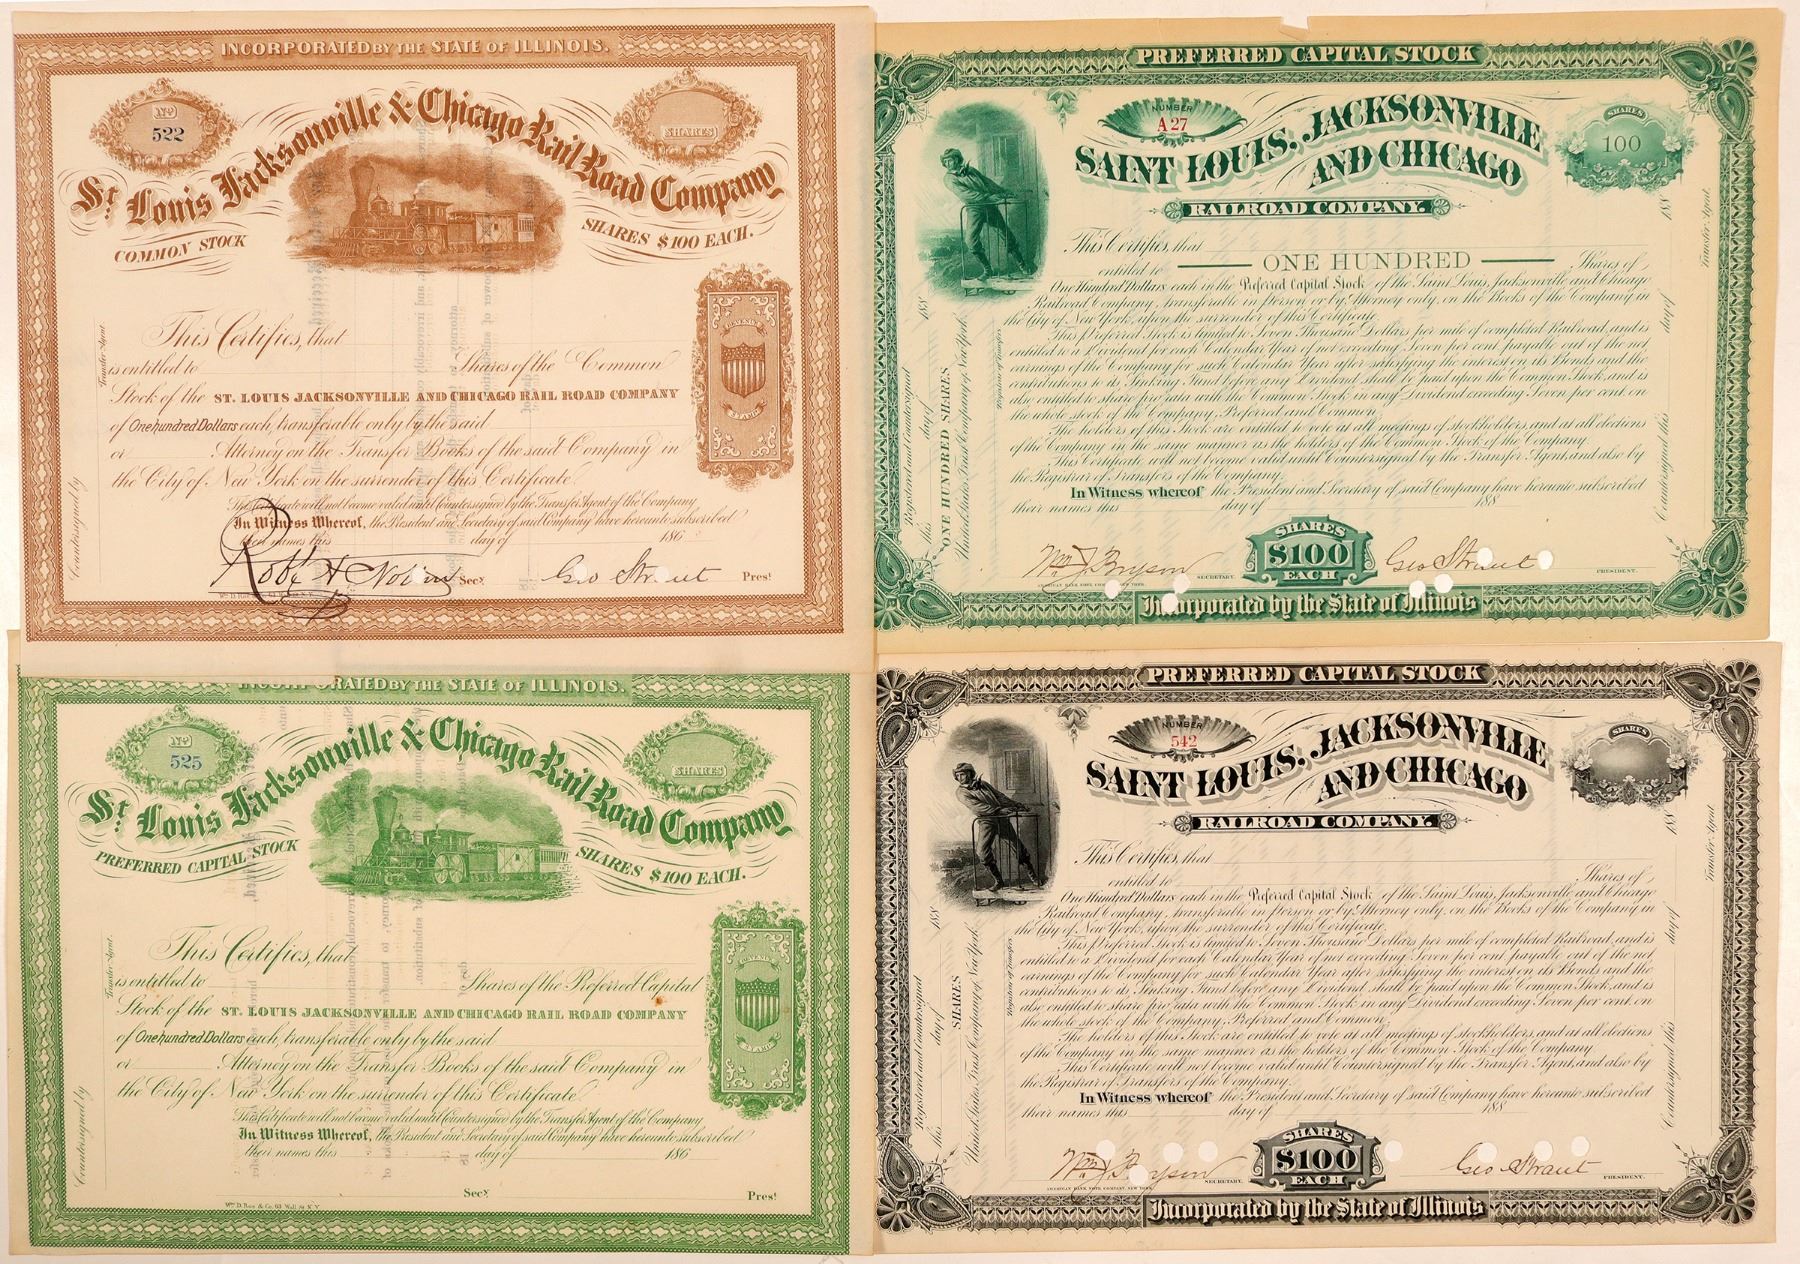 INCORPORATED BY THE STATE OF ILLINOIS.
No
522
SHARES
St. Louis Jacksonville & Chicago Rail Road Company
COMMON STOCK
SHARES $100 EACH.
REVENUE
STAMP
This Certifies, that
is entitled to Shares of the Common
Stock of the ST. LOUIS JACKSONVILLE AND CHICAGO RAIL ROAD COMPANY
of One hundred Dollars each, transferable only by the said
or Attorney on the Transfer Books of the said Company in
the City of New York on the surrender of this Certificate.
This Certificate will not become valid until Countersigned by the Transfer Agent of the Company
In Witness Whereof, the President and Secretary of said Company have hereunto subscribed
their names this day of 186
Secy. Geo Straut Prest
Countersigned by
Transfer Agent.
PREFERRED CAPITAL STOCK
NUMBER
A 27
SHARES
100
SAINT LOUIS, JACKSONVILLE
AND CHICAGO
RAILROAD COMPANY.
This Certifies, that
entitled to ONE HUNDRED Shares of
One Hundred Dollars each in the Preferred Capital Stock of the Saint Louis, Jacksonville and Chicago
Railroad Company, transferable in person or by Attorney only, on the Books of the Company in
the City of New York, upon the surrender of this Certificate.
This Preferred Stock is limited to Seven Thousand Dollars per mile of completed Railroad, and is
entitled to a Dividend for each Calendar Year of not exceeding Seven per cent payable out of the net
earnings of the Company for such Calendar Year after satisfying the interest on its Bonds and the
contributions to its Sinking Fund before any Dividend shall be paid upon the Common Stock, and is
also entitled to share pro rata with the Common Stock in any Dividend exceeding Seven per cent on
the whole stock of the Company, Preferred and Common.
The holders of this Stock are entitled to vote at all meetings of stockholders, and at all elections
of the Company in the same manner as the holders of the Common Stock of the Company.
This Certificate will not become valid until Countersigned by the Transfer Agent, and also by
the Registrar of Transfers of the Company.
In Witness whereof the President and Secretary of said Company have hereunto subscribed
their names this day of 188
Wm J. Bryson SECRETARY. SHARES $100 EACH Geo Straut PRESIDENT.
AMERICAN BANK NOTE COMPANY, NEW YORK.
Incorporated by the State of Illinois
Registered and Countersigned
this day of 188
ONE HUNDRED SHARES
United States Trust Company of New York
Registrar of Transfers
Countersigned this day of 188
Transfer Agent.
INCORPORATED BY THE STATE OF ILLINOIS.
No
525
SHARES
St. Louis Jacksonville & Chicago Rail Road Company
PREFERRED CAPITAL STOCK
SHARES $100 EACH.
REVENUE
STAMP
This Certifies, that
is entitled to Shares of the Preferred Capital
Stock of the ST. LOUIS JACKSONVILLE AND CHICAGO RAIL ROAD COMPANY
of One hundred Dollars each, transferable only by the said
or Attorney on the Transfer Books of the said Company in
the City of New York on the surrender of this Certificate.
This Certificate will not become valid until Countersigned by the Transfer Agent of the Company
In Witness Whereof, the President and Secretary of said Company have hereunto subscribed
their names this day of 186
Secy. Prest
Countersigned by
Transfer Agent.
PREFERRED CAPITAL STOCK
NUMBER
542
SHARES
SAINT LOUIS, JACKSONVILLE
AND CHICAGO
RAILROAD COMPANY.
This Certifies, that
entitled to Shares of
One Hundred Dollars each in the Preferred Capital Stock of the Saint Louis, Jacksonville and Chicago
Railroad Company, transferable in person or by Attorney only, on the Books of the Company in
the City of New York, upon the surrender of this Certificate.
This Preferred Stock is limited to Seven Thousand Dollars per mile of completed Railroad, and is
entitled to a Dividend for each Calendar Year of not exceeding Seven per cent payable out of the net
earnings of the Company for such Calendar Year after satisfying the interest on its Bonds and the
contributions to its Sinking Fund before any Dividend shall be paid upon the Common Stock, and is
also entitled to share pro rata with the Common Stock in any Dividend exceeding Seven per cent on
the whole stock of the Company, Preferred and Common.
The holders of this Stock are entitled to vote at all meetings of stockholders, and at all elections
of the Company in the same manner as the holders of the Common Stock of the Company.
This Certificate will not become valid until Countersigned by the Transfer Agent, and also by
the Registrar of Transfers of the Company.
In Witness whereof the President and Secretary of said Company have hereunto subscribed
their names this day of 188
Wm J. Bryson SECRETARY. SHARES $100 EACH Geo Straut PRESIDENT.
AMERICAN BANK NOTE COMPANY, NEW YORK.
Incorporated by the State of Illinois
Registered and Countersigned
this day of 188
SHARES
United States Trust Company of New York
Registrar of Transfers
Countersigned this day of 188
Transfer Agent